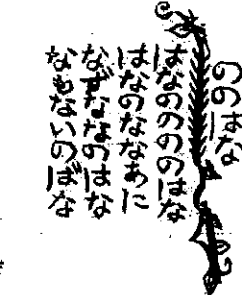 ののはな
はなのののはな
はなのななあに
なずななのはな
なもないのばな